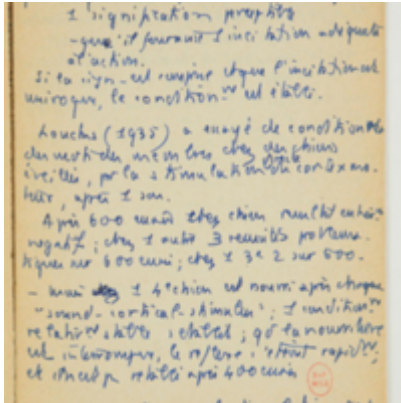 1 signification perceptive
- que il fournit 1 incitation adéquate
à l'action.
Si la sign. est comprise et que l'incitation est
univoque, le condition^nt est établi.
Loucks (1935) a essayé de conditionner
des mvts des membres chez des chiens
éveillés, par la stimulation du cortex mo-
teur, après 1 son.
Après 600 essais chez 1 chien résultat entièr^t
négatif ; chez 1 autre 3 réussites problèma-
tiques sur 600 essais ; chez 1 3e 2 sur 500.
- mais 1 4e chien est nourri après chaque
"sound-cortical-stimulus" ; 1 condition^nt
relativ^t stable s'établit ; qd la nourriture
est interrompue, le réflexe s'éteint rapid^t,
et rétabli après 400 essais